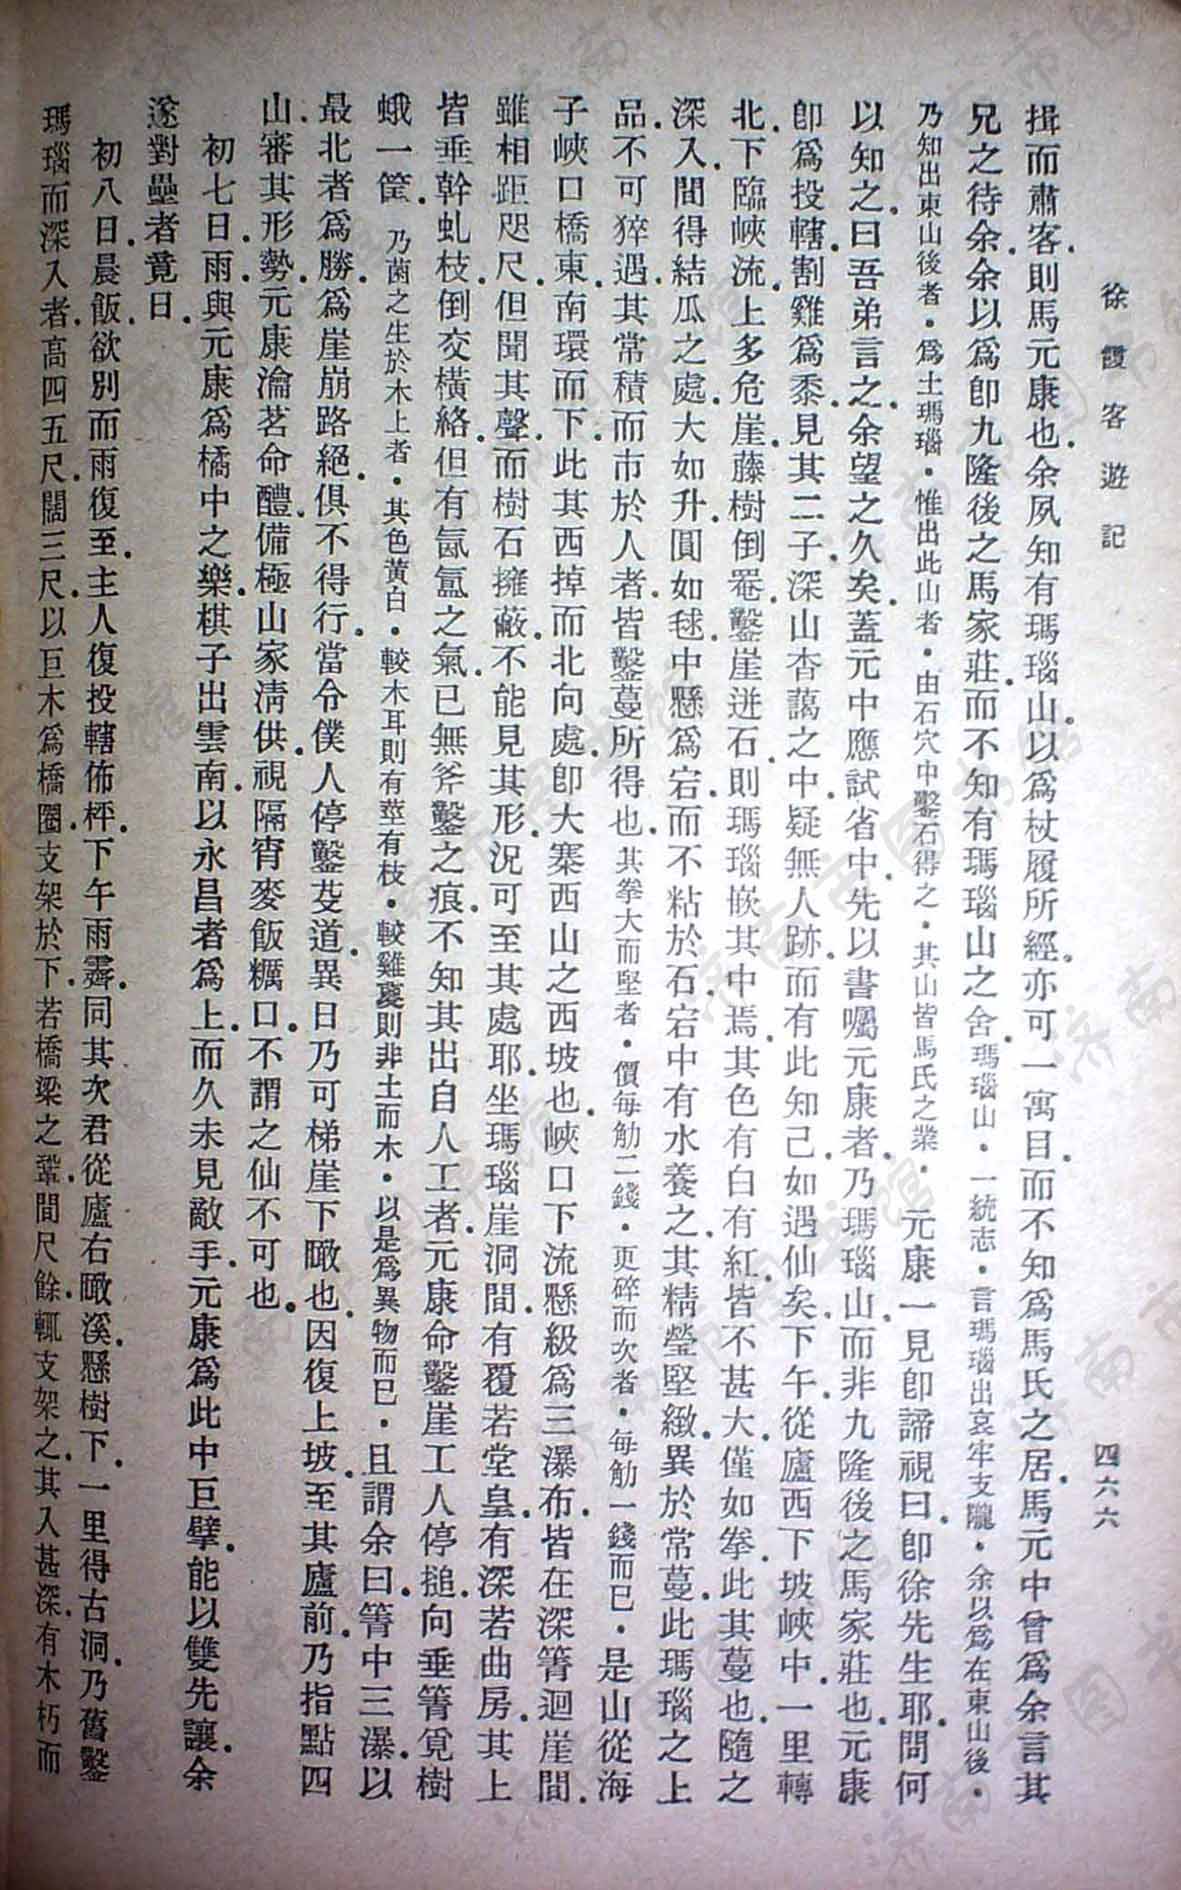 徐霞客遊記
四六六
揖而肅客．則馬元康也．余夙知有瑪瑙山．以爲杖履所經．亦可一寓目．而不知爲馬氏之居．馬元中曾爲余言其
兄之待余．余以爲卽九隆後之馬家莊．而不知有瑪瑙山之舍．瑪瑙山．一統志．言瑪瑙出哀牢支隴．余以爲在東山後．
乃知出東山後者．爲土瑪瑙．惟出此山者．由石穴中鑿石得之．其山皆馬氏之業．元康一見卽諦視曰．卽徐先生耶．問何
以知之．曰吾弟言之．余望之久矣．蓋元中應試省中．先以書囑元康者．乃瑪瑙山．而非九隆後之馬家莊也．元康
卽爲投轄．割雞爲黍．見其二子．深山杳藹之中．疑無人跡．而有此知己．如遇仙矣．下午．從廬西下坡峽中．一里轉
北．下臨峽流．上多危崖．藤樹倒罨．鑿崖迸石．則瑪瑙嵌其中焉．其色有白有紅．皆不甚大．僅如拳．此其蔓也．隨之
深入．間得結瓜之處．大如升．圓如毬．中懸爲宕．而不粘於石．宕中有水養之．其精瑩堅緻．異於常蔓．此瑪瑙之上
品．不可猝遇．其常積而市於人者．皆鑿蔓所得也．其拳大而堅者．價每觔二錢．更碎而次者．每觔一錢而已．是山從海
子峽口橋東．南環而下．此其西掉而北向處．卽大寨西山之西坡也．峽口下流懸級爲三瀑布．皆在深箐迴崖間．
雖相距咫尺．但聞其聲．而樹石擁蔽．不能見其形．況可至其處耶．坐瑪瑙崖洞間．有覆若堂皇．有深若曲房．其上
皆垂幹虬枝．倒交橫絡．但有氤氳之氣．已無斧鑿之痕．不知其出自人工者．元康命鑿崖工人停搥．向垂箐覓樹
蛾一筐．乃菌之生於木上者．其色黃白．較木耳則有莖有枝．較雞葼則非土而木．以是爲異物而已．且謂余曰．箐中三瀑．以
最北者爲勝．爲崖崩路絕．俱不得行．當令僕人停鑿芟道．異日乃可梯崖下瞰也．因復上坡．至其廬前．乃指點四
山．審其形勢．元康瀹茗命醴．備極山家淸供．視隔宵麥飯糲口．不謂之仙不可也．
初七日．雨．與元康爲橘中之樂．棋子出雲南．以永昌者爲上．而久未見敵手．元康爲此中巨擘．能以雙先讓．余
遂對壘者竟日．
初八日．晨飯．欲別而雨復至．主人復投轄佈枰．下午雨霽．同其次君從廬右瞰溪．懸樹下．一里得古洞．乃舊鑿
瑪瑙而深入者．高四五尺．闊三尺．以巨木爲橋圈．支架於下．若橋梁之鞏．間尺餘．輒支架之．其入甚深．有木朽而